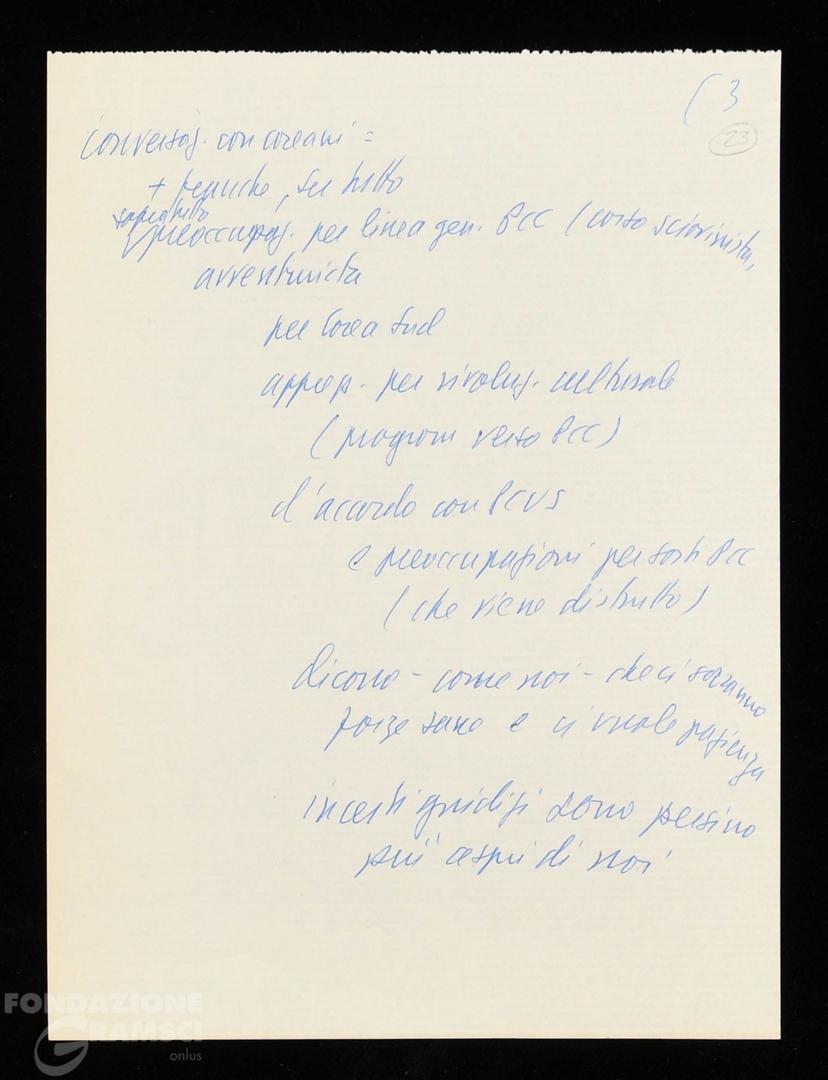 ( 3
23
Conversaz. con coreani =
+ temiche, su tutto
soprattutto
preoccupaz. per linea gen. PCC (corso sciovinista,
avventurista
per Corea Sud
apprez. per rivoluz. culturale
(progrom verso PCC)
d'accordo con PCUS
e preoccupazioni per sorti PCC
(che viene distrutto)
dicono - come noi - che ci saranno
forze sane e ci vuole pazienza
in certi giudizi sono persino
più aspri di noi
FONDAZIONE
GRAMSCI
onlus